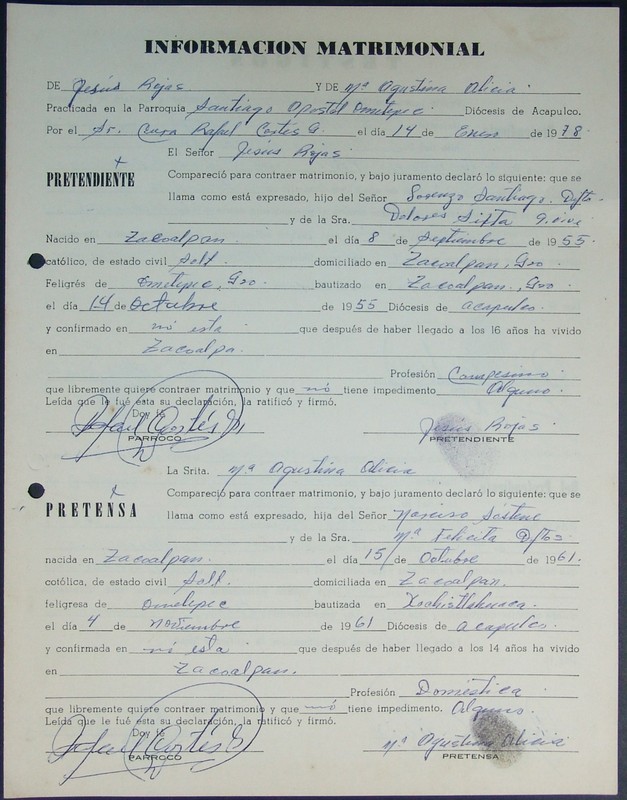 INFORMACION MATRIMONIAL
DE Jesús Rojas Y DE Mª Agustina Alicia.
Practicada en la Parroquia Santiago Apostol Ometepec. Diócesis de Acapulco.
Por el Sr. Cura Rafael Cortés G. el día 14 de Enero de 1978.
El Señor Jesús Rojas.
PRETENDIENTE
Compareció para contraer matrimonio, y bajo juramento declaró lo siguiente: que se
llama como está expresado, hijo del Señor Lorenzo Santiago. Dfto.
y de la Sra. Dolores q. vive
Nacido en Zacoalpan. el día 8 de Septiembre de 1955.
católico, de estado civil Solt. domiciliado en Zacoalpan, Gro.
Feligrés de Ometepec, Gro. bautizado en Zacoalpan, Gro
el día 14 de Octubre de 1955 Diócesis de acapulco.
y confirmado en no está que después de haber llegado a los 16 años ha vivido
en Zacoalpa.
Profesión Campesino.
que libremente quiere contraer matrimonio y que no tiene impedimento Alguno.
Leída que le fué esta su declaración, la ratificó y firmó.
Doy fé
Rafael Cortés G
PARROCO
Jesús Rojas.
PRETENDIENTE
La Srita. Mª Agustina Alicia
PRETENSA
Compareció para contraer matrimonio, y bajo juramento declaró lo siguiente: que se
llama como está expresado, hija del Señor Narciso
y de la Sra. Mª Felicita Dftos
nacida en Zacoalpan. el día 15 de Octubre de 1961.
cotólica, de estado civil Solt. domiciliada en Zacoalpan.
feligresa de Ometepec bautizada en Xochistlahuaca.
el día 4 de Noviembre de 1961 Diócesis de acapulco.
y confirmada en no está que después de haber llegado a los 14 años ha vivido
en Zacoalpan.
Profesión Doméstica
que libremente quiere contraer matrimonio y que no tiene impedimento. Alguno.
Leída que le fué esta su declaración, la ratificó y firmó.
Doy fé
Rafael Cortés G
PARROCO
Mª Agustina Alicia
PRETENSA